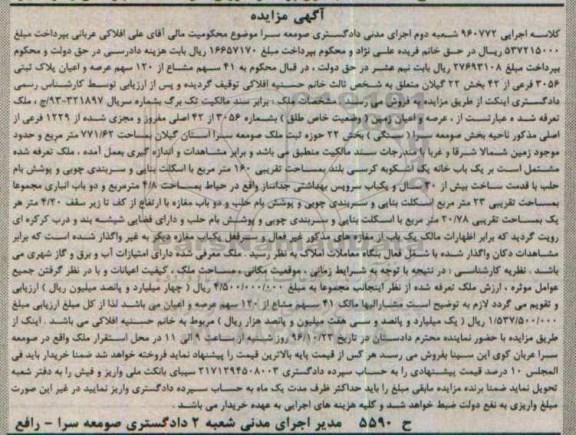 آگهی مزایده
کلاسه اجرایی ۹۶۰۷۷۲ شعبه دوم اجرای مدنی دادگستری صومعه سرا موضوع محکومیت مالی آقای علی افلاکی عربانی بپرداخت مبلغ
۵۳۷۲۱۵۰۰۰ ریال در حق خانم فریده علی نژاد و محکوم بپرداخت مبلغ ۱۶۶۵۷۱۷۰ ریال بابت هزینه دادرسی در حق دولت و محکوم
بپرداخت مبلغ ۲۷۶۹۳۱۰۸ ریال بابت نیم عشر در حق دولت ، در قبال محکوم به ۴۱ سهم مشاع از ۱۲۰ سهم عرصه و اعیان پلاک ثبتی
۳۰۵۶ فرعی از ۴۲ بخش ۲۲ گیلان متعلق به شخص ثالث خانم حسنیه افلاکی توقیف گردیده و پس از ارزیابی توسط کارشناس رسمی
دادگستری اینکت از طریق مزایده به فروش می رسد: مشخصات ملک : برابر سند مالکیت تک برگ بشماره سریال ۳۲۱۸۹۷-ج/۹۳ ، ملک
تعرفه شده عبارتست از ، عرصه و اعیان زمین ( وضعیت خاص طلق ) بشماره ۳۰۵۶ از ۴۲ اصلی مفروز و مجزی شده از ۱۲۲۹ فرعی از
اصلی مذکور ناحیه بخش صومعه سرا ( بستگی ) بخش ۲۲ حوزه ثبت ملک صومعه سرا استان گیلان بمساحت ۷۷۱/۶۲ متر مربع و حدود
موجود زمین شمالا شرقا و غربا با مندرجات سند مالکیت منطبق می باشد و برابر مشاهدات و اندازه گیری بعمل آمده ، ملک تعرفه شده
مشتمل است بر یک باب خانه یک اشکوبه کرسی بلند بمساحت تقریبی ۱۶۰ متر مربع با اسکلت بنایی و سربندی چوبی و پوشش بام
حلب با قدمت ساخت بیش از ۳۰ سال و یکباب سرویس بهداشتی جدانساز واقع در حیاط بمساحت ۴/۸ مترمربع و دو باب انباری مجموعا
بمساحت تقریبی ۲۳ متر مربع اسکلت بنایی و سربندی چوبی و پوشش بام حلب و دو باب مغازه با ارتفاع از کف تا زیر سقف ۴/۲۰ متر هر
یک بمساحت تقریبی ۲۰/۷۸ متر مربع با اسکلت بنایی و سربندی چوبی و پوشش بام حلب و دارای فضایی شیشه بند و درب کرکره ای
رویت گردید که برابر اظهارات مالک یک باب از مغازه های مذکور غیر فعال و سر قفل یکباب مغازه دیگر به غیر واگذار شده است که برابر
مشاهدات دکان واگذار شده با شغل فعال بنگاه معاملات املاک به نظر رسید . ملک معرفی شده دارای امتیازات آب و برق و گاز شهری می
باشد . نظریه کارشناسی : در نتیجه با توجه به شرایط زمانی ، موقعیت مکانی ، مساحت ملک ، کیفیت اعیانات و با در نظر گرفتن جمیع
عوامل موثره ، ارزش ملک تعرفه شده از نظر اینجانب مجموعا به مبلغ ۴/۵۰۰/۰۰۰/۰۰۰ ریال ( چهار میلیارد و پانصد میلیون ریال ) ارزیابی
و تقویم می گردد لازم به توضیح است مشارالیها مالک ۴۱ سهم مشاع از ۱۲۰ سهم عرصه و اعیان می باشند لذا از کل مبلغ ارزیابی مبلغ
۱/۵۳۷/۵۰۰/۰۰۰ ریال ( یک میلیارد و پانصد و سی هفت میلیون و پانصد هزار ریال ) مربوط به خانم حسنیه افلاکی می باشد . اینک از
طریق مزایده با حضور نماینده محترم دادستان در تاریخ ۹۶/۱۰/۲۳ روز شنبه از ساعت ۹ الی ۱۱ در محل استقرار ملک واقع در صومعه
سرا عربان کوی ابن سینا بفروش می رسد هر کس از قیمت پایه بالاترین قیمت را پیشنهاد نماید فروخته خواهد شد ضمنا خریدار باید فی
المجلس ۱۰ درصد قیمت پیشنهادی را به حساب سپرده دادگستری ۲۱۷۱۲۹۴۵۰۸۰۰۳ سیبای بانک ملی واریز و فیش را به دفتر شعبه
تحویل نماید ضمنا برنده مزایده مابقی مبلغ را باید حداکثر ظرف مدت یک ماه به حساب سپرده دادگستری واریز نمایید در غیر این صورت
مبلغ واریزی به نفع دولت ضبط خواهد شد و کلیه هزینه های اجرایی به عهده خریدار می باشد .
ح ۵۵۹۰ مدیر اجرای مدنی شعبه ۲ دادگستری صومعه سرا - رافع